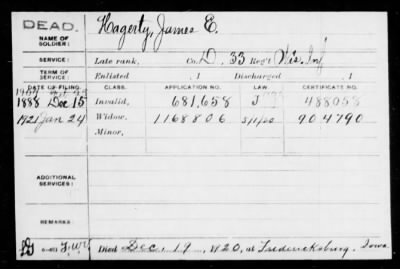 DEAD.
NAME OF SOLDIER:
Hagerty, James E.
SERVICE:
Late rank, Co. D. 33 Reg't Wis. Inf
TERM OF SERVICE:
Enlisted , 1 Discharged , 1
DATE OF FILING. CLASS. APPLICATION NO. CERTIFICATE NO.
1888 Dec 15 Invalid, 681,658 488058
1921 Jan 24 Widow, 1168806 904790
Minor,
ADDITIONAL SERVICES:
REMARKS:
Died Dec. 19, 1920, at Fredericksburg, Iowa